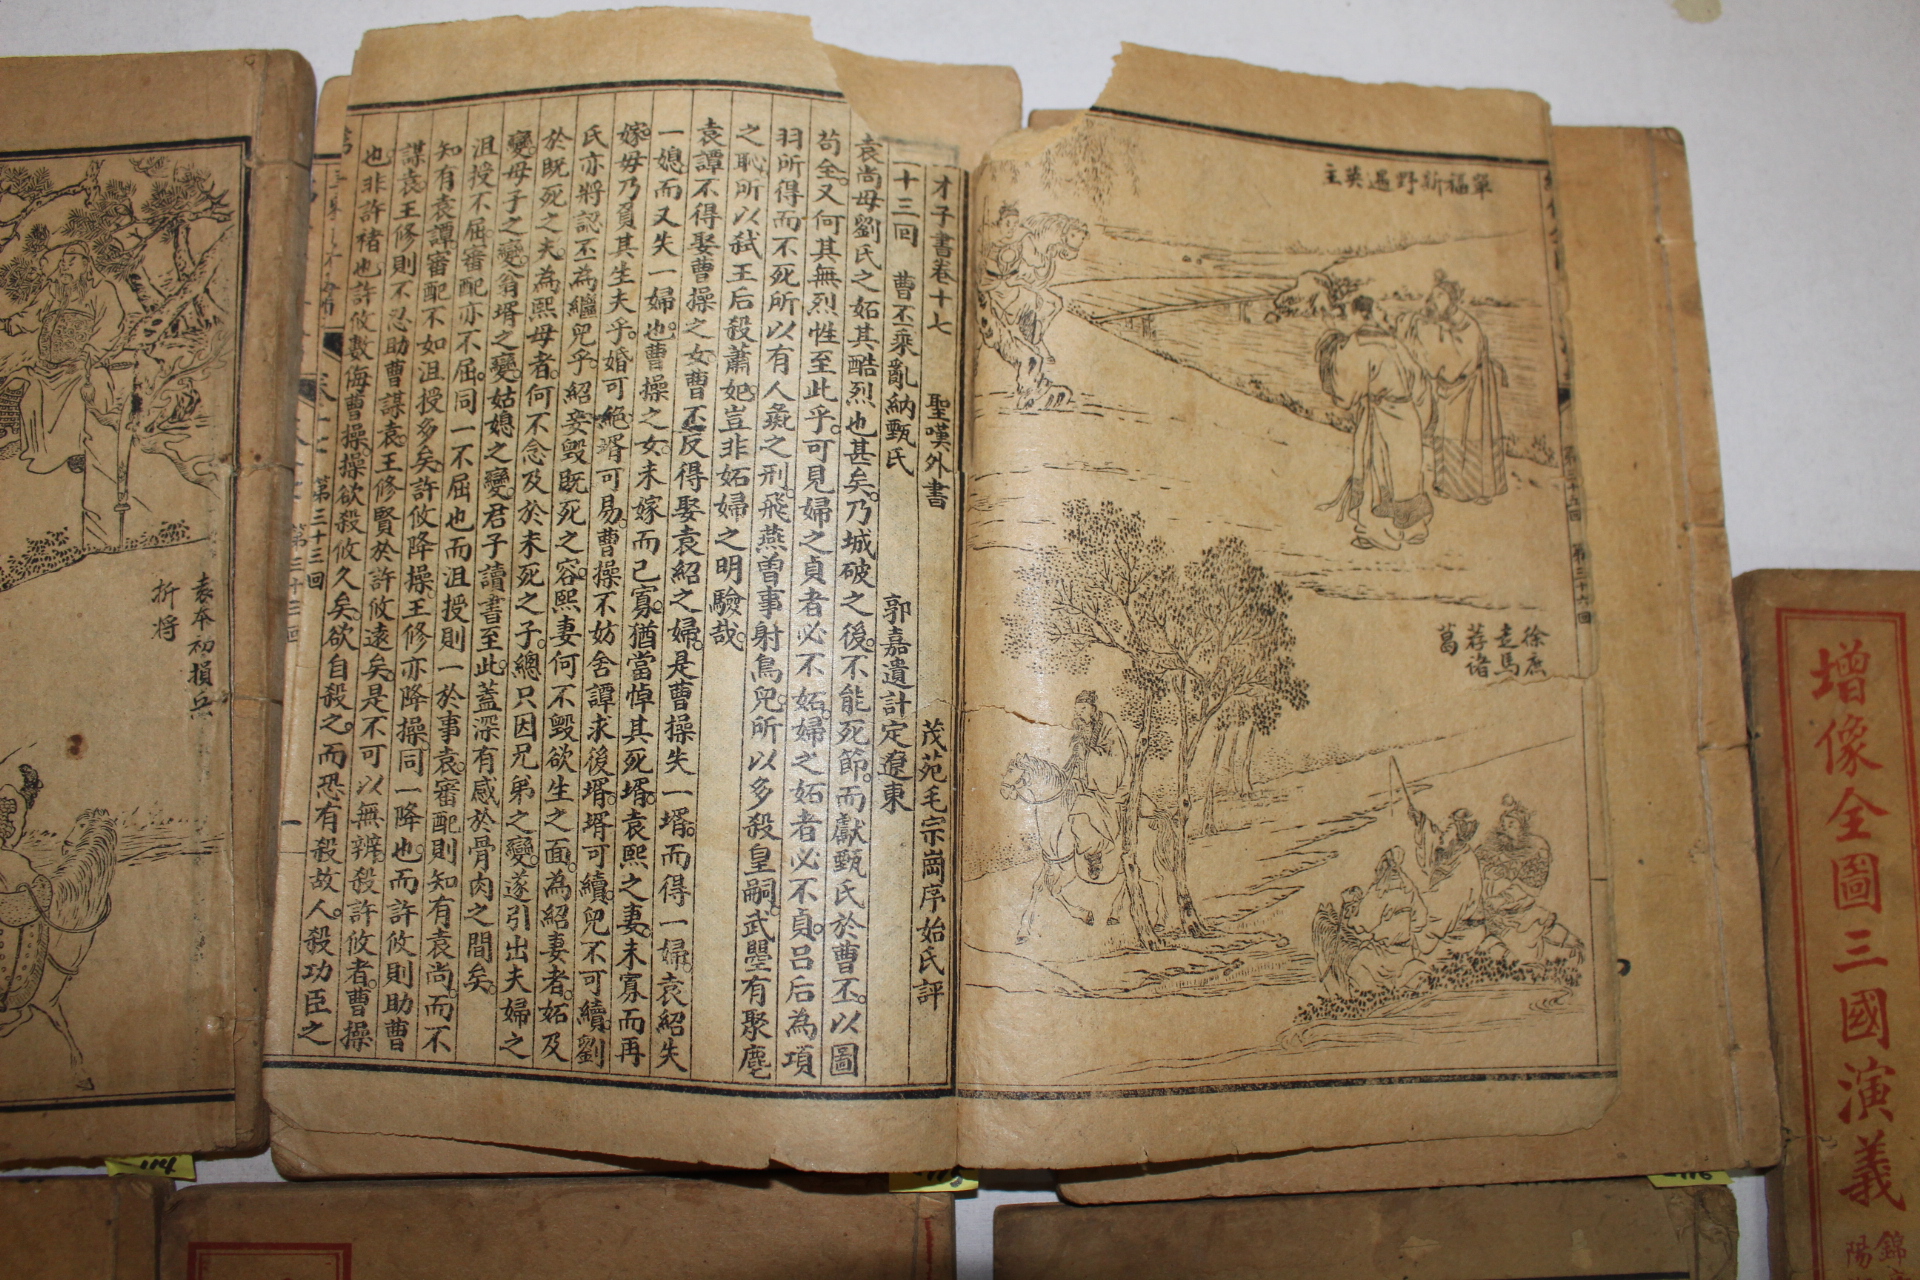 增像全圖三國演義
錦
陽
單福新野遇英主
徐庶
走馬
荐诸
葛
第三十五回 第三十六回
才子書卷十七 聖嘆外書 茂苑毛宗崗序始氏評
十三回 曹丕乘亂納甄氏 郭嘉遺計定遼東
袁尚母劉氏之妬其酷烈也甚矣乃城破之後不能死節而獻甄氏於曹丕以圖
苟全又何其無烈性至此乎可見婦之貞者必不妬婦之妬者必不貞呂后為項
羽所得而不死所以有人彘之刑飛燕曾事射鳥兒所以多殺皇嗣武曌有聚麀
之恥所以弑王后殺蕭妃豈非妬婦之明驗哉
袁譚不得娶曹操之女曹丕反得娶袁紹之婦是曹操失一壻而得一婦袁紹失
一媳而又失一婦也曹操之女未嫁而已寡猶當悼其死壻袁熙之妻未寡而再
嫁毋乃負其生夫乎婚可絕壻可易曹操不妨舍譚求後壻壻可續兒不可續劉
氏亦將認丕為繼兒乎紹妾毀既死之容熙妻何不毀欲生之面為紹妻者妬及
於既死之夫為熙母者何不念及於未死之子總只因兄弟之變遂引出夫婦之
變母子之變翁壻之變姑媳之變君子讀書至此蓋深有感於骨肉之間矣
沮授不屈審配亦不屈同一不屈也而沮授則一於事袁審配則知有袁尚而不
知有袁譚審配不如沮授多矣許攸降操王修亦降操同一降也而許攸則助曹
謀袁王修則不忍助曹謀袁王修賢於許攸遠矣是不可以無辨殺許攸者曹操
也非許褚也許攸數侮曹操操欲殺攸久矣欲自殺之而恐有殺故人殺功臣之
第三十三回
一
第三十三回
袁本初損兵
折將